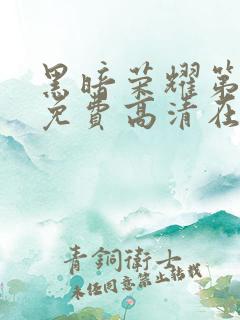 黑暗荣耀第
免費高清在
青銅衛士
未经同意禁止转载